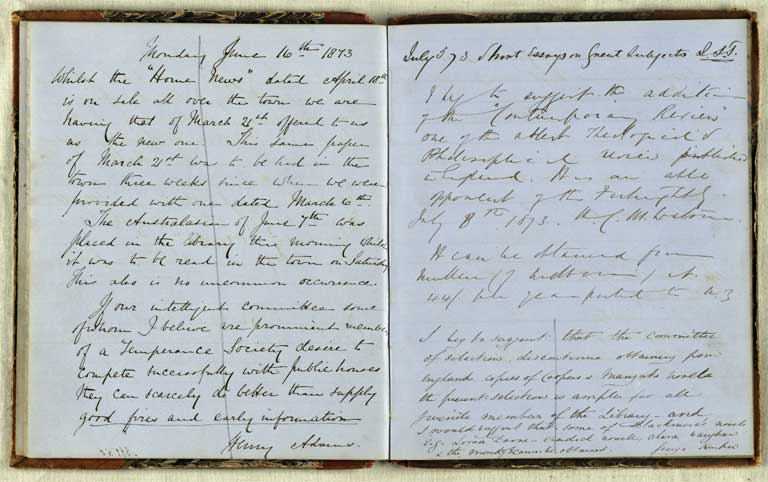 Monday June 16th 1873
Whilst the "Home News" dated April 18th
is on sale all over the town we are
having that of March 21st offered to us
as the new one. This same paper
of March 21st was to be had in the
town three weeks since when we were
provided with one dated March 6th.
The Australasian of June 7th was
placed in the library this morning whilst
it was to be read in the town on Saturday
This also is no uncommon occurrence.
If our intelligent committee some
of whom I believe are prominent members
of a Temperance Society desire to
compete successfully with public houses
they can scarcely do better than supply
good fires and early information
Henry Adams.
July 3 73 Short Essays on Great Subjects
I beg to suggest the addition
of the "Contemporary Review"
one of the ablest Theological &
Philosophical reviews published
in England. It is an able
opponent of the Fortnightly.
July 8th 1873. Watson
It can be obtained from
Mullen of Melbourne at
44/ per year posted to
I beg to suggest that the committee
of selection discontinue obtaining from
england copies of Coopers & Maryats novels
the present selection is ample for all
juvenile members of the Library - and
I would suggest that some of Blackmore's novels
e.g. Lorna Doone - Cradock Nowell, Clara Vaughan
& the be obtained. George